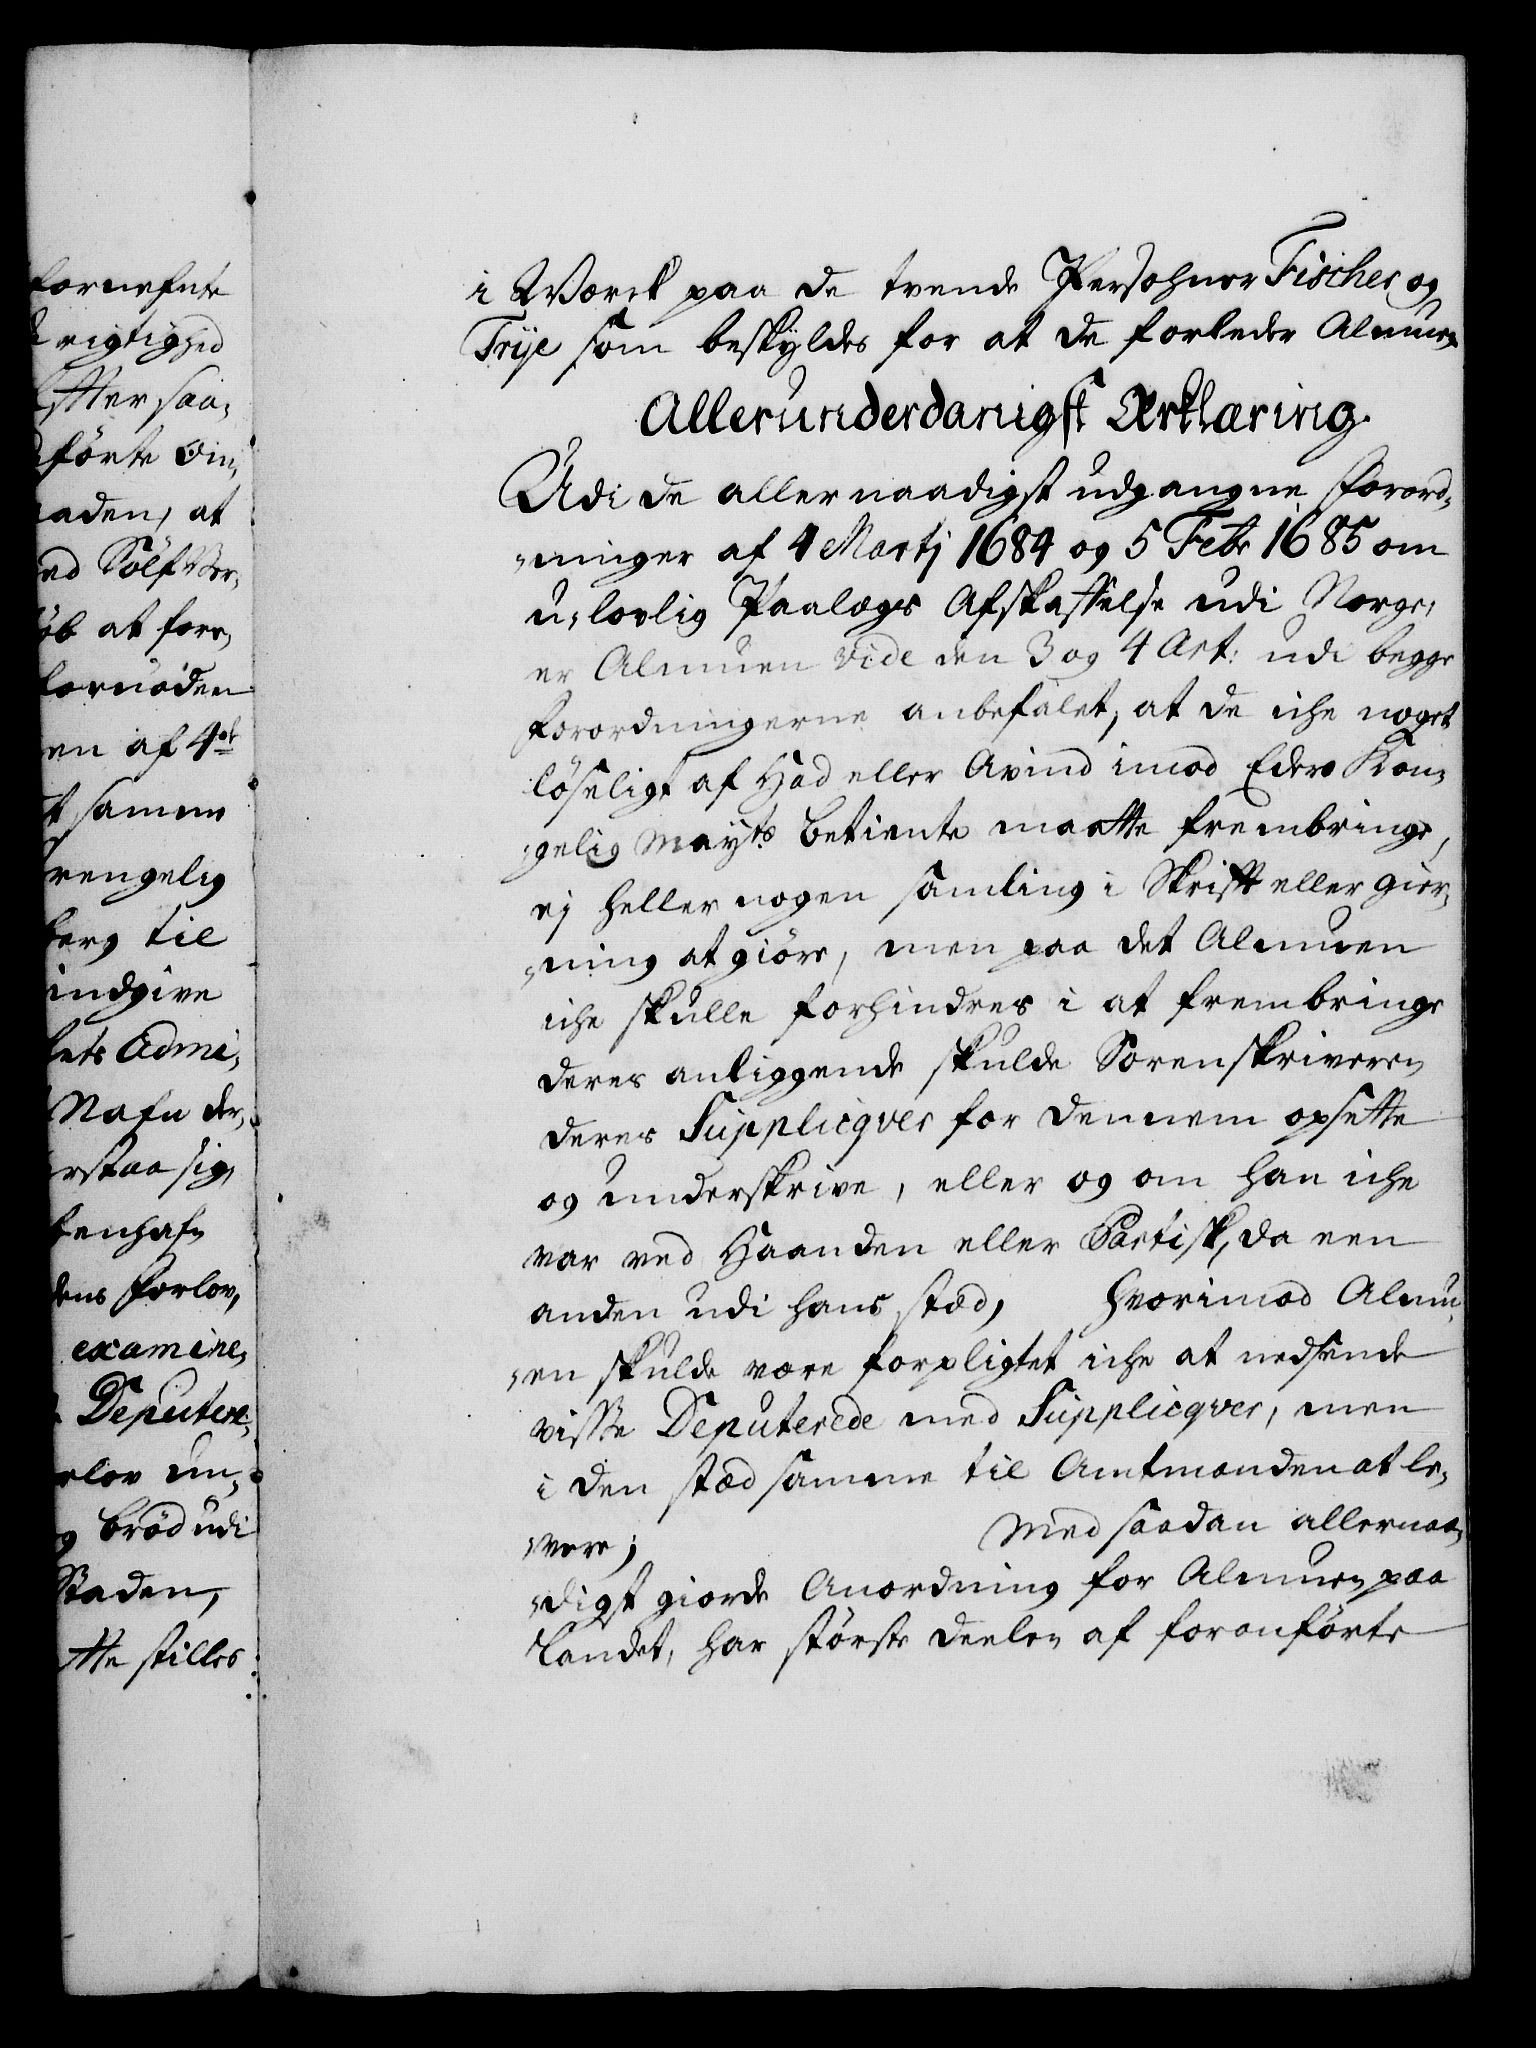 fornefnte
rigtighed
Efter saa,
förte Om,
aaden, at
ed Sölf Ver,
öb at fore,
fornöden
en af 4de
t samme
rengelig
berg til
indgive
hets Admi,
Nafn der,
rstaa sig,
benhafn
dens forlov,
examine,
Deputere,
rlov un,
g bröd udi
Staden,
tte stilles
i Værck paa de tvende Persohner Fischer og
Trye som beskyldes for at de forleder Almuen
Allerunderdanigst Erklæring.
Udi de allernaadigst udgangne forord,
,,ninger af 4 Martj 1684 og 5 Febr 1685 om
u,lovlig Paalægs Afskaffelse udi Norge,
er Almuen vide den 3 og 4 Art: udi begge
forordningerne anbefalet, at de iche noget
löseligt af Had eller Avind imod Eders Kon,
,,gelig Mayts Betiente maatte frembringe,
ej heller nogen samling i Skrift eller gier,
,,ning at giöre, men paa det Almuen
iche skulle forhindres i at frembringe
deres anliggende skulde Sorenskriveren
deres Supplicqver for dennem opsette
og underskrive, eller og om han iche
var ved Haanden eller Partisk, da een
anden udi hans stæd, hvorimod Almu,
,,en skulde være forpligtet iche at nedsende
visse Deputerede med Supplicqver, men
i den stæd samme til Amtmanden at le,
,,vere; Med saadan allernaa,
,,digst giorde Anordning for Almuen paa
Landet, har störste deelen af foranförte